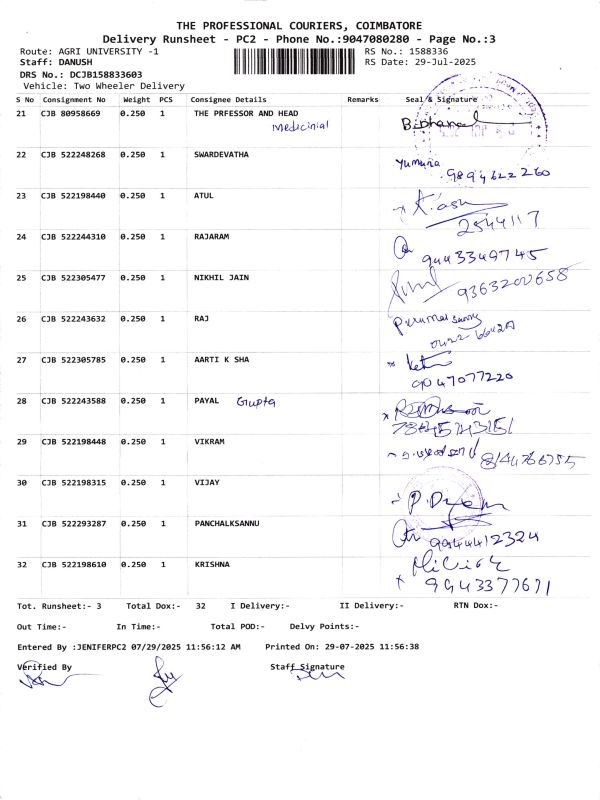 THE PROFESSIONAL COURIERS, COIMBATORE
Delivery Runsheet - PC2 - Phone No.:9047080280 - Page No.:3
Route: AGRI UNIVERSITY -1 RS No.: 1588336
Staff: DANUSH RS Date: 29-Jul-2025
DRS No.: DCJB158833603
Vehicle: Two Wheeler Delivery
S No Consignment No Weight PCS Consignee Details Remarks Seal & Signature
21 CJB 80958669 0.250 1 THE PRFESSOR AND HEAD
Medicinial
22 CJB 522248268 0.250 1 SWARDEVATHA Yumuna
9894622260
23 CJB 522198440 0.250 1 ATUL
2544117
24 CJB 522244310 0.250 1 RAJARAM
9443349745
25 CJB 522305477 0.250 1 NIKHIL JAIN 9363200658
26 CJB 522243632 0.250 1 RAJ
27 CJB 522305785 0.250 1 AARTI K SHA
9047077220
28 CJB 522243588 0.250 1 PAYAL Gupta
29 CJB 522198448 0.250 1 VIKRAM 8144766755
30 CJB 522198315 0.250 1 VIJAY
31 CJB 522293287 0.250 1 PANCHALKSANNU 9944412324
32 CJB 522198610 0.250 1 KRISHNA
9943377671
Tot. Runsheet:- 3 Total Dox:- 32 I Delivery:- II Delivery:- RTN Dox:-
Out Time:- In Time:- Total POD:- Delvy Points:-
Entered By :JENIFERPC2 07/29/2025 11:56:12 AM Printed On: 29-07-2025 11:56:38
Verified By Staff Signature